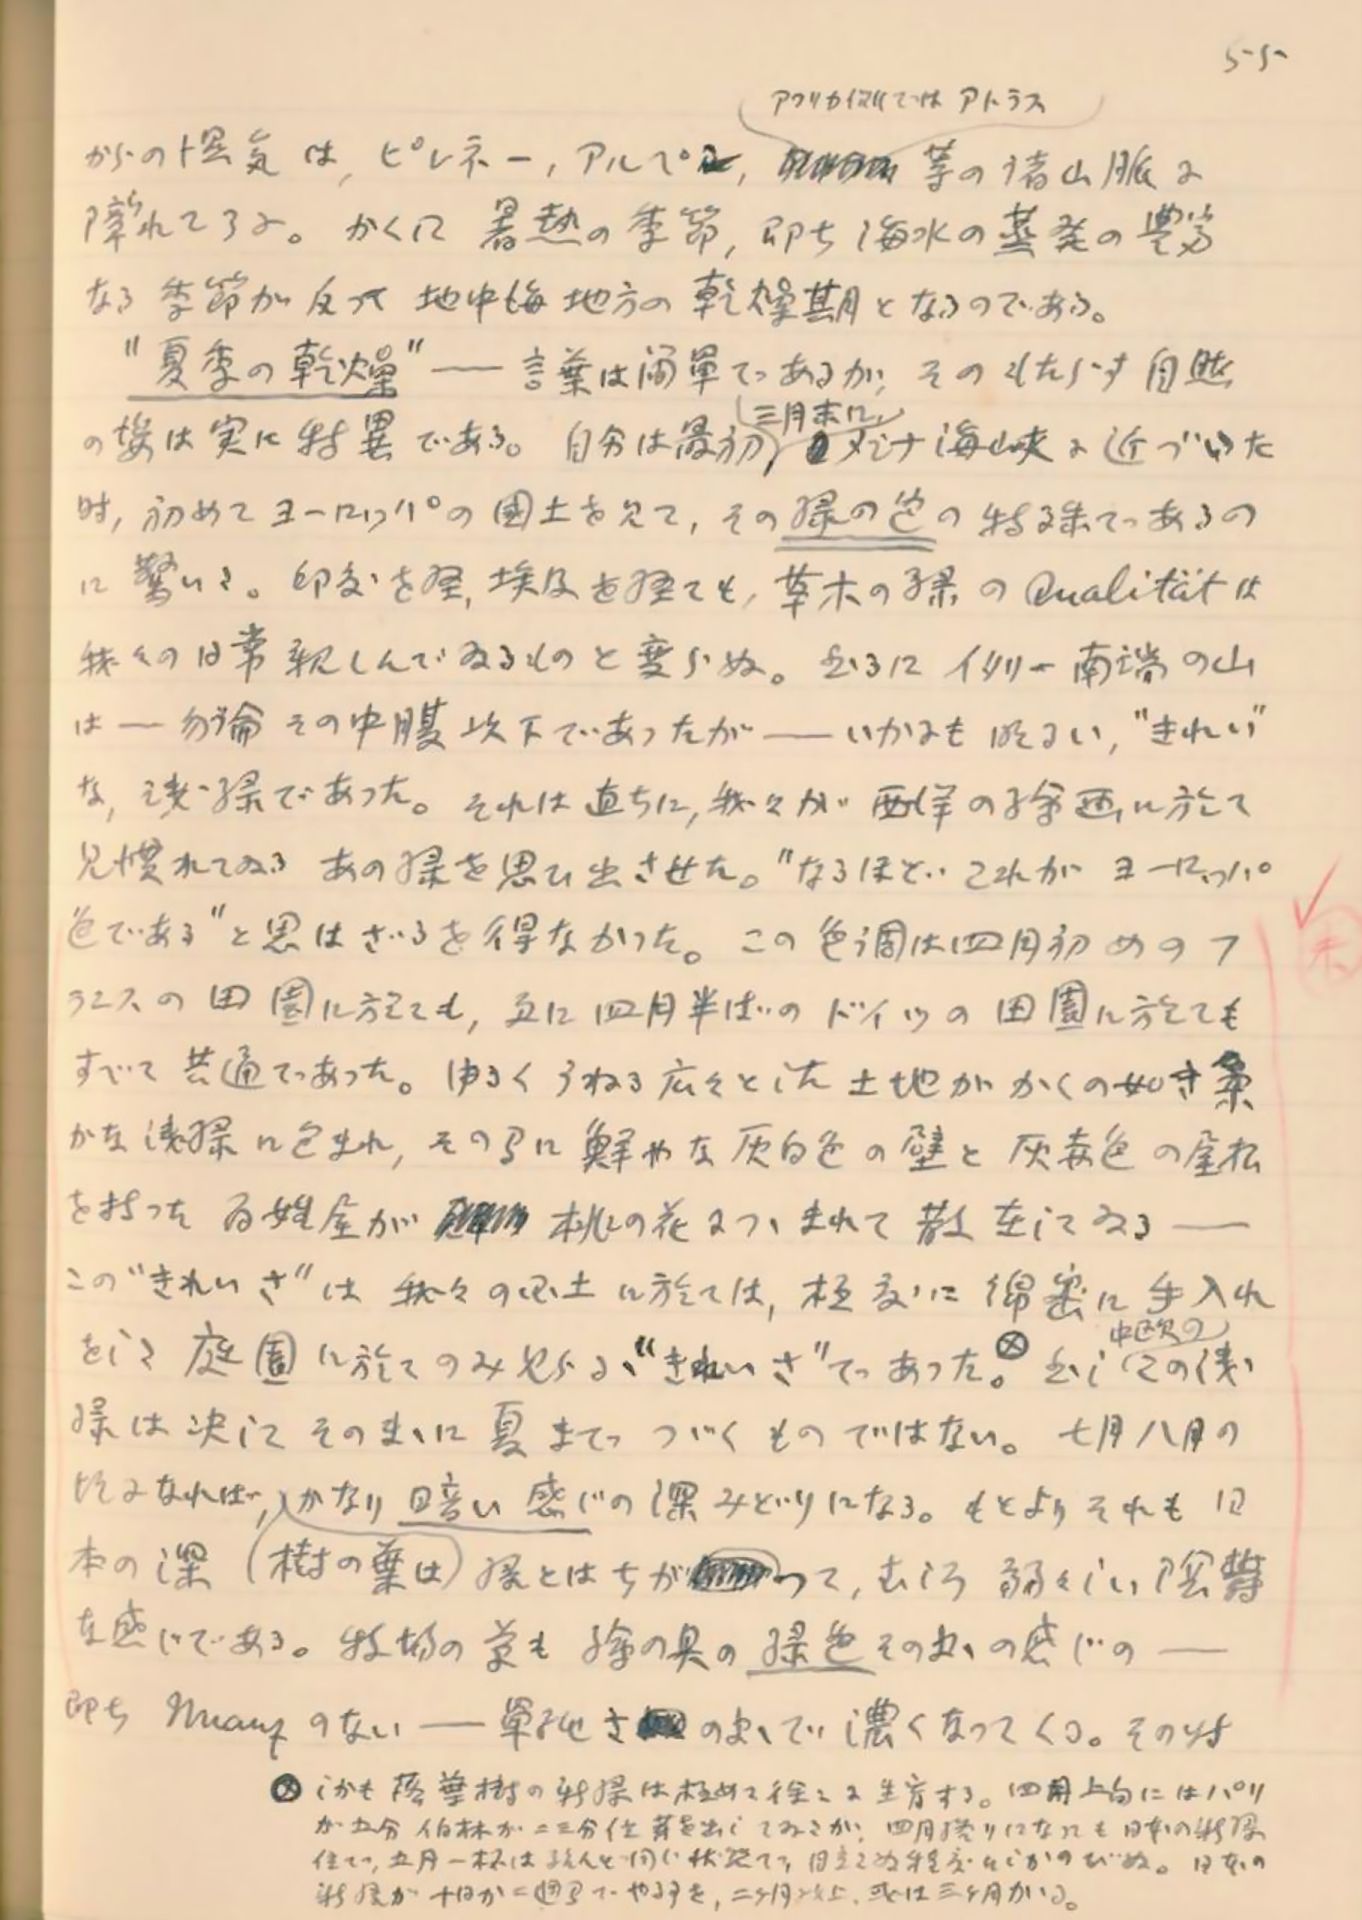 55
アフリカ側ではアトラス
からの湿気は、ピレネー、アルペン、等の諸山脈に
障られてゐる。かくて暑熱の季節、即ち海水の蒸発の豊富
なる季節が反って地中海地方の乾燥期となるのである。
"夏季の乾燥"——言葉は簡単であるが、そのもたらす自然
の姿は実に特異である。自分は最初、メシナ海峡に近づいた
三月末に、
時、初めてヨーロッパの国土を見て、その緑の色の特殊であるの
に驚いた。印度を経、埃及を経ても、草木の緑のQualitätは
我々の日常親しんでゐるものと変らぬ。然るにイタリー南端の山
は——勿論その中腹以下であったが——いかにも明るい、"きれい"
な、浅緑であった。それは直ちに、我々が西洋の絵画に於て
見慣れてゐるあの緑を思ひ出させた。"なるほどこれがヨーロッパ
色である"と思はざるを得なかった。この色調は四月初めのフ
ランスの田園に於ても、更に四月半ばのドイツの田園に於ても
すべて共通であった。ゆるくうねる広々とした土地がかくの如き柔
かな浅緑に包まれ、その間に鮮やな灰白色の壁と灰赤色の屋根
を持った百姓屋が桃の花につゝまれて散在してゐる——
この"きれいさ"は我々の国土に於ては、極度に綿密に手入れ
をした庭園に於てのみ見らるゝ"きれいさ"であった。⊗然しこの浅
中欧の
緑は決してそのまゝに夏までつゞくものではない。七月八月の
頃になれば、かなり暗い感じの深みどりになる。もとよりそれも日
本の深緑とはちがって、むしろ弱々しい陰鬱
(樹の葉は)
な感じである。牧場の草も絵の具の緑色そのまゝの感じの——
即ちNuanzのない——単純さのまゝで濃くなってくる。その時
⊗しかも落葉樹の新緑は極めて徐々に生育する。四月上旬にはパリ
が五分伯林が二三分位芽を出してゐたが、四月終りになっても日本の新緑
位で、五月一杯は殆んど同じ状態で、目立たぬ程度にしかのびぬ。日本の
新緑が十日か二週間でやる事を、二ヶ月以上、或は三ヶ月かゝる。
未